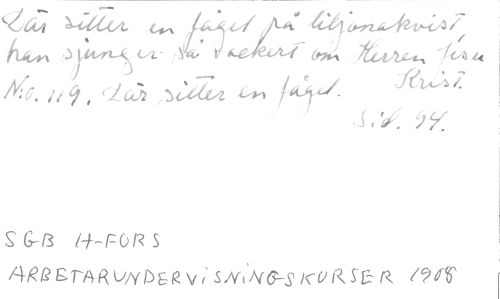 Där sitter en fågel på liljonakvist,
han sjunger så vackert om Herren Jesu
Krist.
N:o. 119. Där sitter en fågel.
Sid. 94.
SGB H-FORS
ARBETARUNDERVISNINGSKURSER 1908